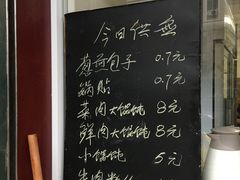 今日供应
葱荷包子 0.7元
锅贴 0.7元
菜肉大馄饨 8元
鲜肉大馄饨 8元
小馄饨 5元
牛肉粉丝